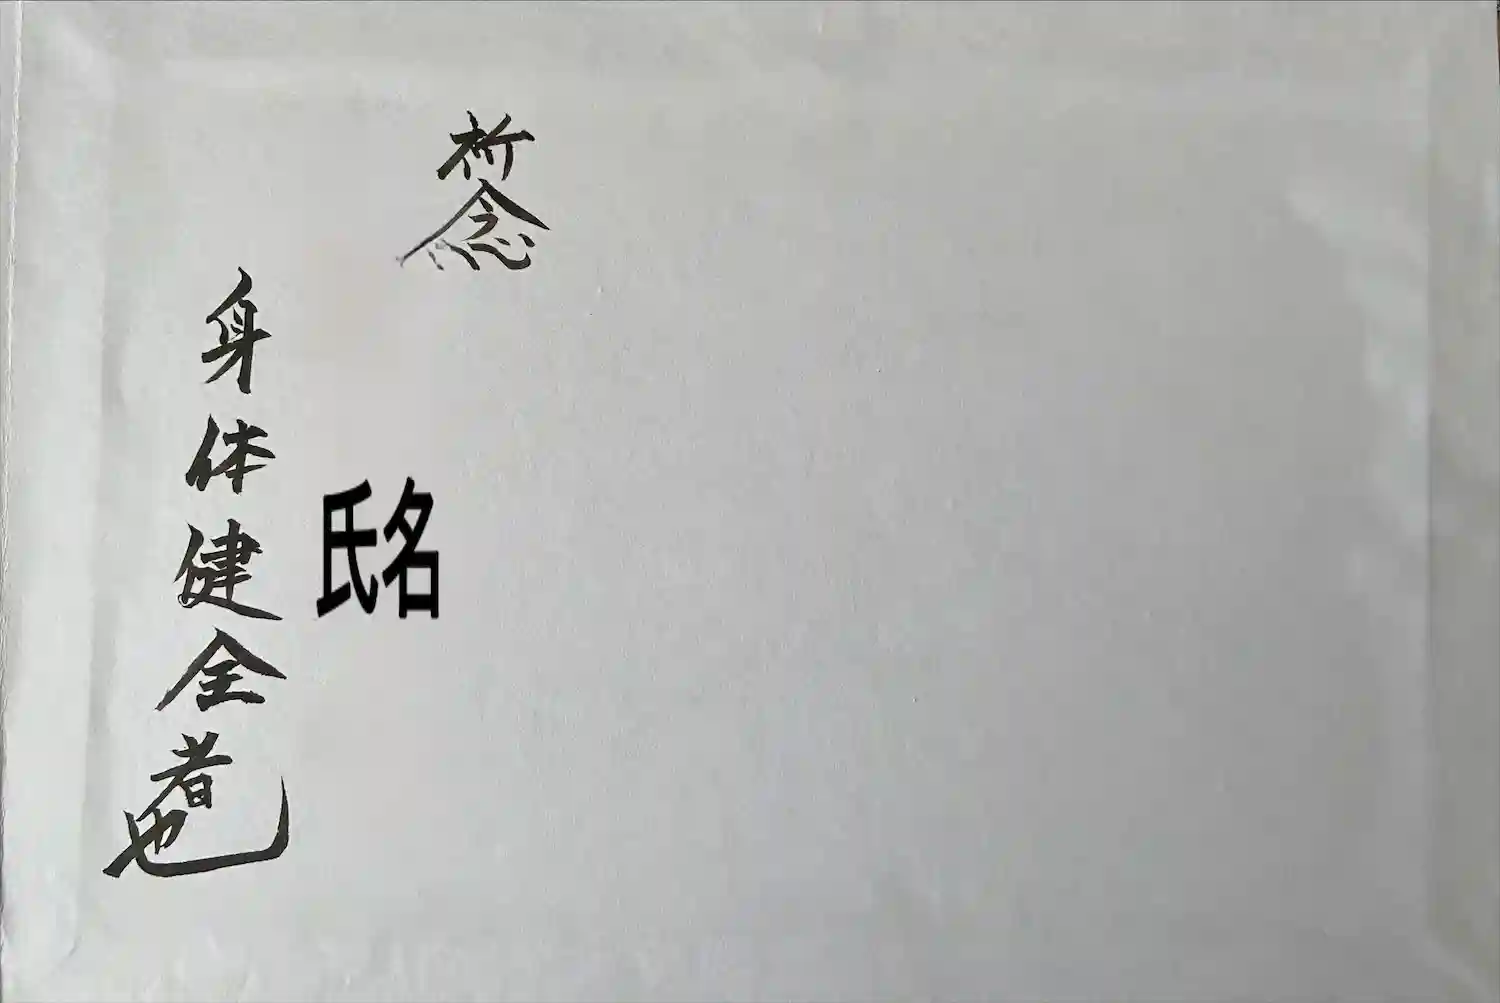 祈念
氏名
身体健全者也